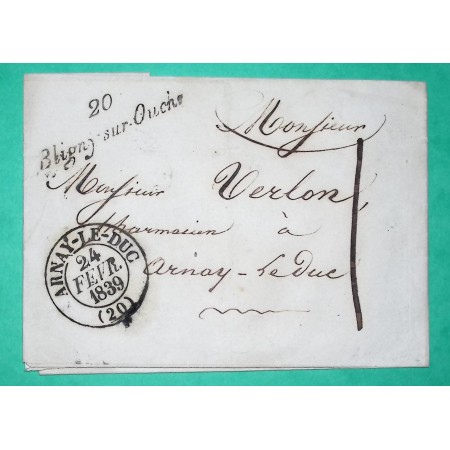 20
Bligny-sur-Ouche
Monsieur
Monsieur Verlon,
pharmacien à
Arnay-le Duc
ARNAY-LE-DUC
24
FEVR.
1839
(20)
1